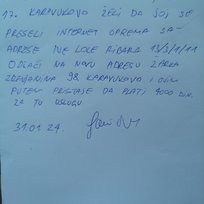 17. KARAVUKOVO ŽELI DA JOJ SE
PRESELI INTERNET OPREMA SA
ADRESE IVE LOLE RIBARA 13/3/1/11
ODŽACI NA NOVU ADRESU ŽARKA
ZRENJANINA 98 KARAVUKOVO I OVIM
PUTEM PRISTAJE DA PLATI 4000 DIN.
ZA TU USLUGU.
31.01.24.